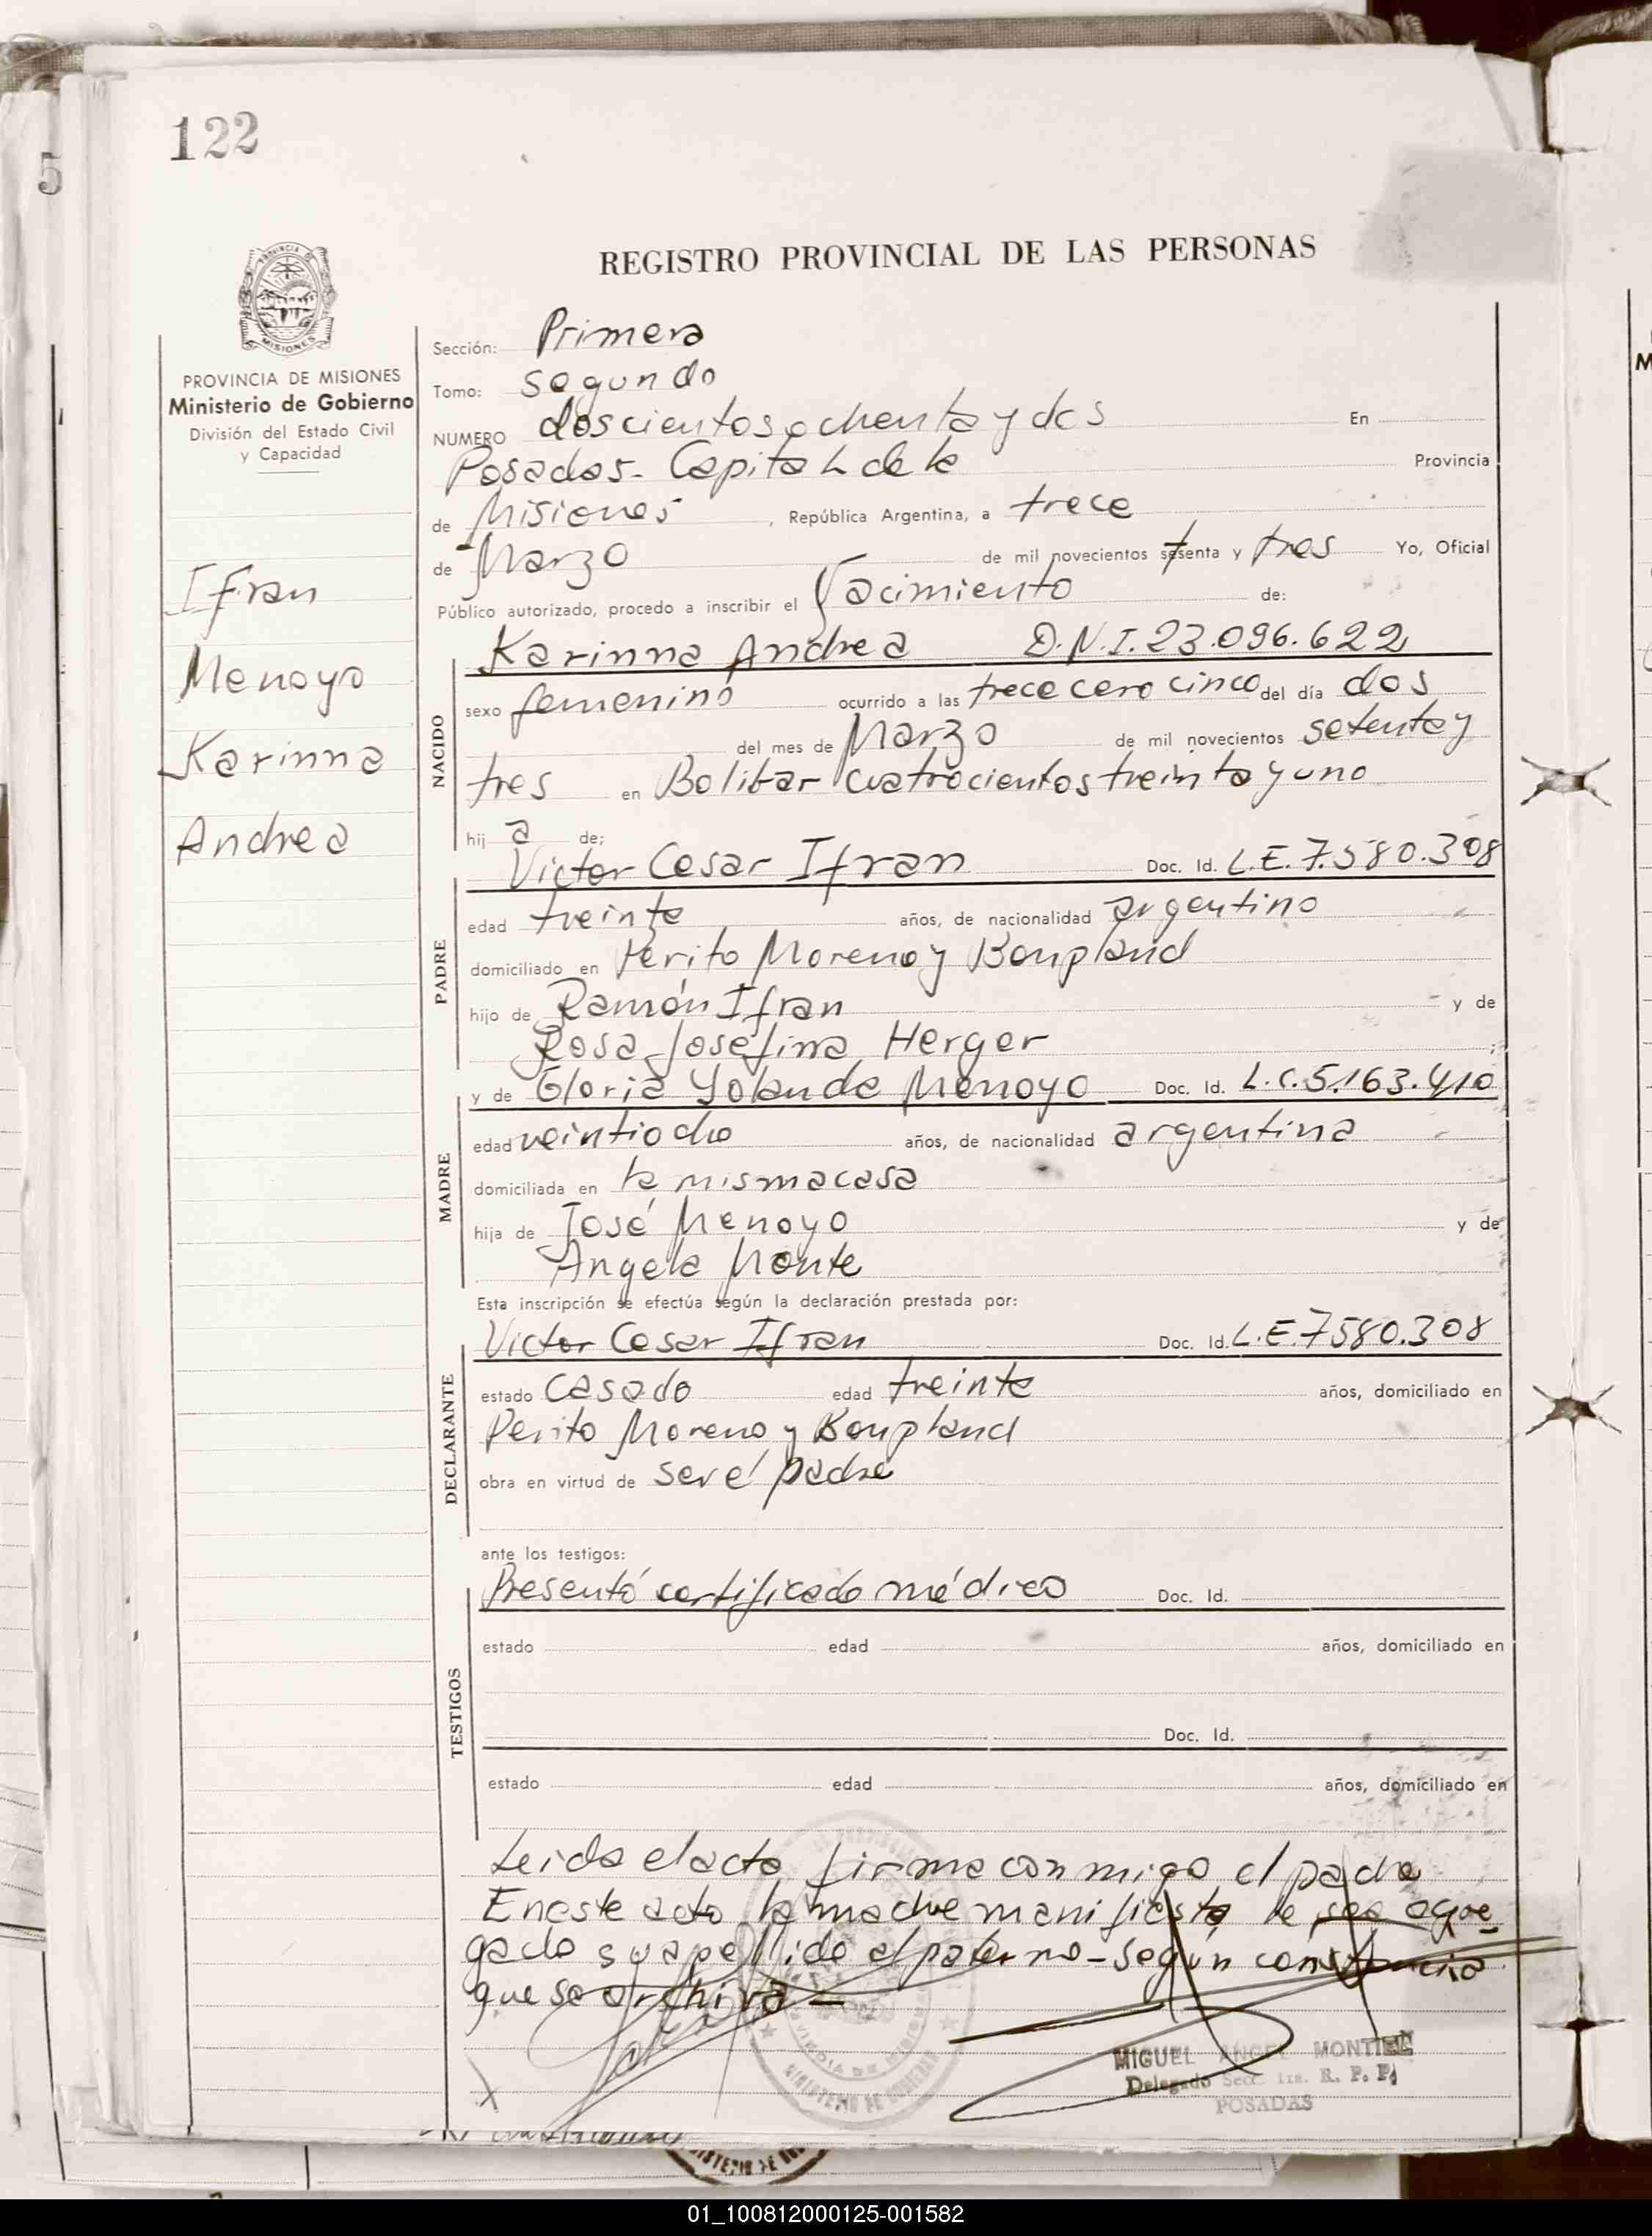 122
5
REGISTRO PROVINCIAL DE LAS PERSONAS
PROVINCIA DE MISIONES
Ministerio de Gobierno
División del Estado Civil
y Capacidad
Ifran
Menoyo
Karinna
Andrea
Sección: Primera
Tomo: segundo
NUMERO doscientos ochenta y dos En
Posadas - Capital de la Provincia
de Misiones, República Argentina, a trece
de Marzo de mil novecientos setenta y tres Yo, Oficial
Público autorizado, procedo a inscribir el Nacimiento de:
NACIDO
Karinna Andrea D.N.I. 23.096.622
sexo femenino ocurrido a las trece cero cinco del día dos
del mes de Marzo de mil novecientos setenta y
tres en Bolibar cuatrocientos treinta y uno
hij a de;
PADRE
Victor Cesar Ifran Doc. Id. L.E. 7.580.308
edad treinta años, de nacionalidad argentino
domiciliado en Perito Moreno y Bonpland
hijo de Ramón Ifran y de
Rosa Josefina Herger ;
MADRE
y de Gloria Yolanda Menoyo Doc. Id. L.C. 5.163.410
edad veintiocho años, de nacionalidad argentina
domiciliada en la misma casa
hija de José Menoyo y de
Angela Monte
Esta inscripción se efectúa según la declaración prestada por:
DECLARANTE
Victor Cesar Ifran Doc. Id. L.E. 7580.308
estado casado edad treinta años, domiciliado en
Perito Moreno y Bonpland
obra en virtud de ser el padre
ante los testigos:
TESTIGOS
Presentó certificado médico Doc. Id.
estado edad años, domiciliado en
Doc. Id.
estado edad años, domiciliado en
Leida el acta firma conmigo el padre
En este acto la madre manifiesta le sea agre
gado su apellido al paterno - según constancia
que se archiva -
MIGUEL ANGEL MONTIEL
Delegado Secc. 1ra. R. P. P.
POSADAS
01_100812000125-001582